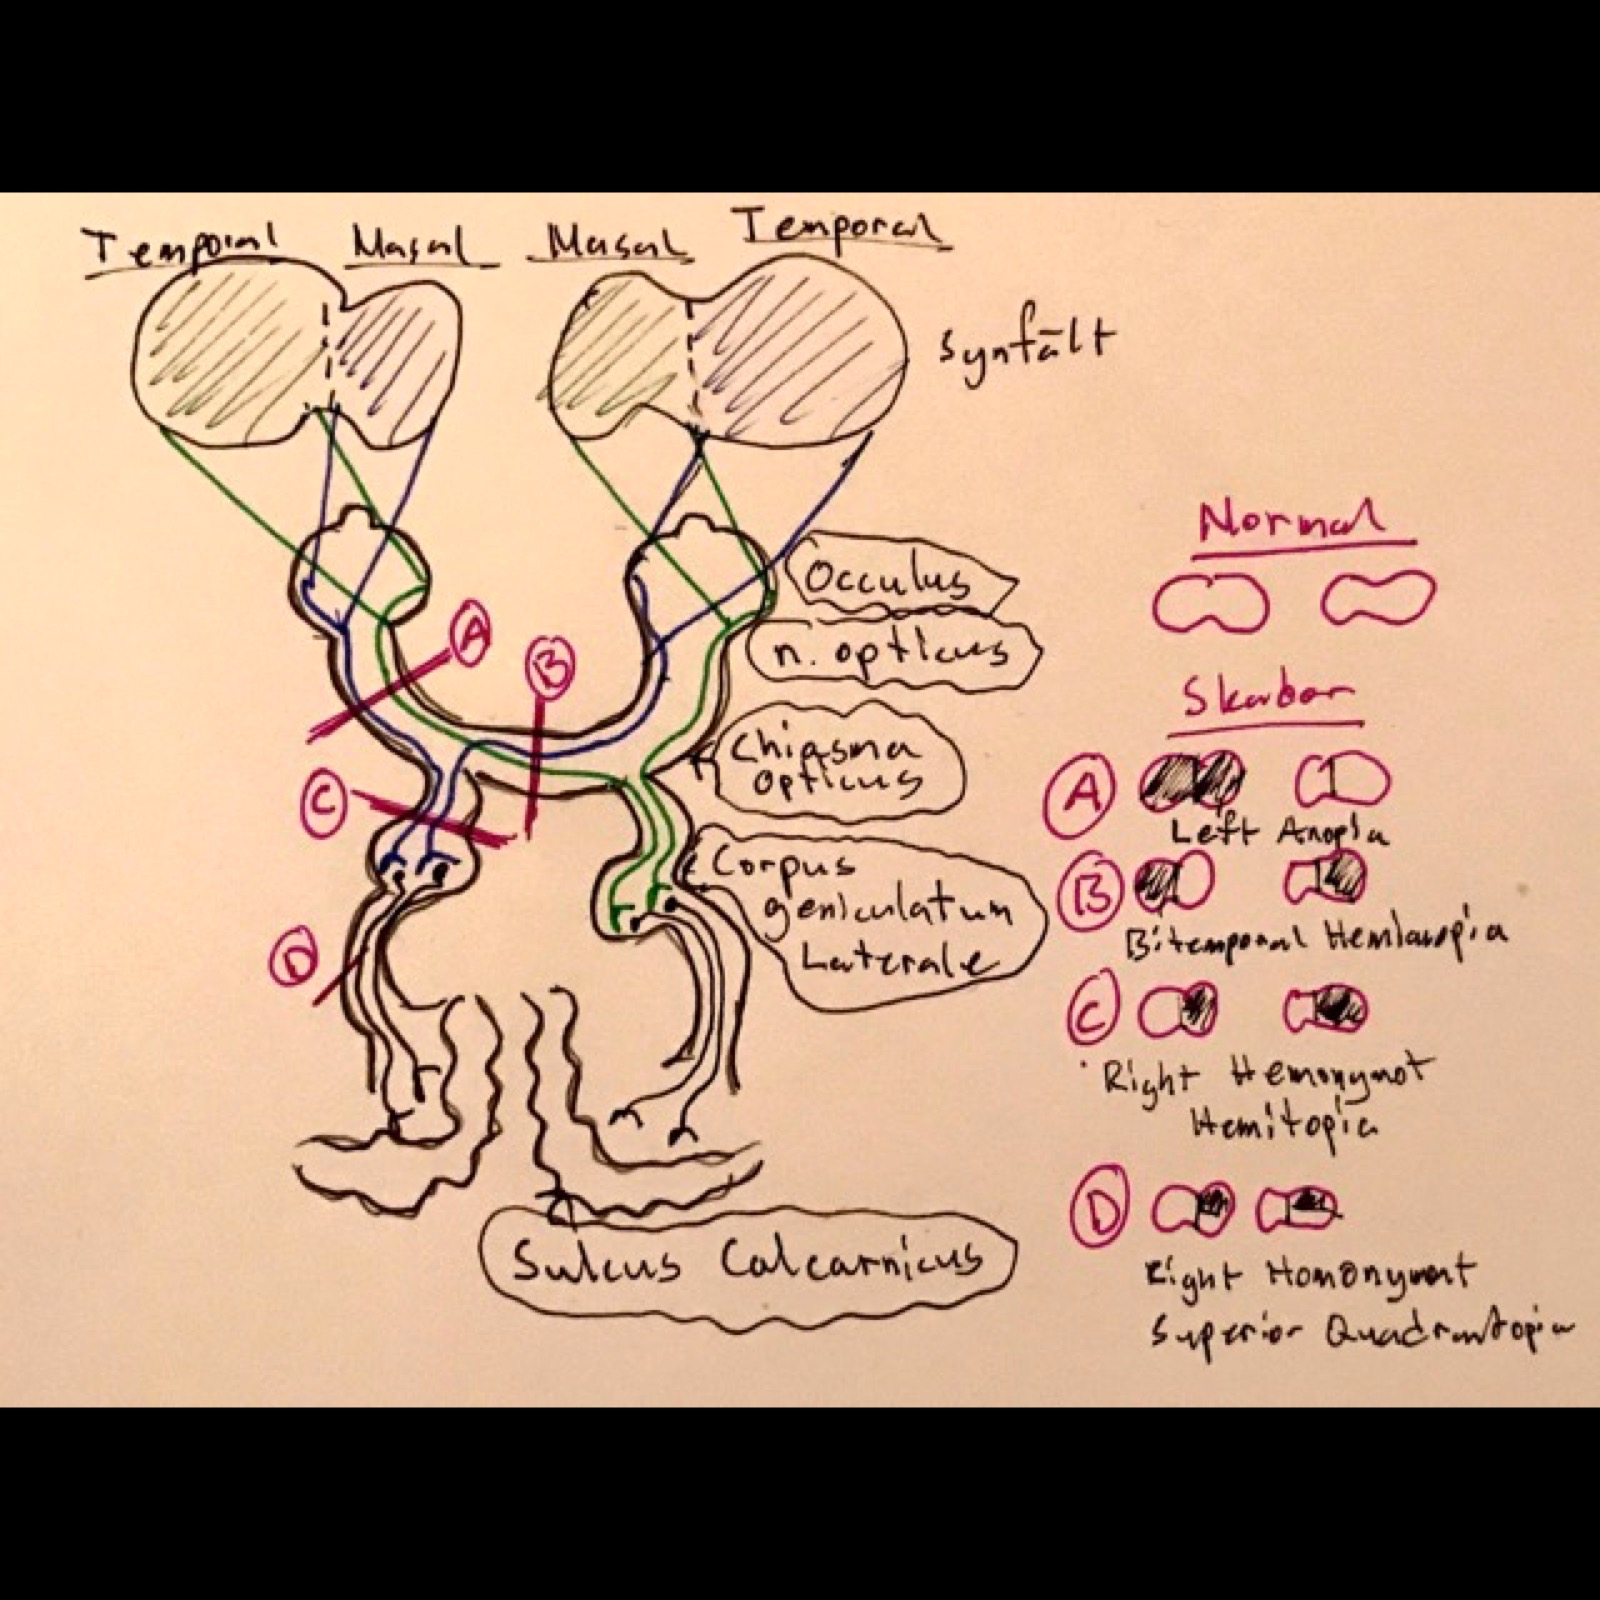 Temporal Nasal Nasal Temporal
Synfält
Occulus
n. opticus
Chiasma
Opticus
Corpus
geniculatum
Laterale
Sulcus Calcarnicus
A
B
C
D
Normal
Skador
A
Left Anopia
B
Bitemporal Hemianopia
C
Right Hemonymot
Hemitopia
D
Right Homonymont
Superior Quadrantopia